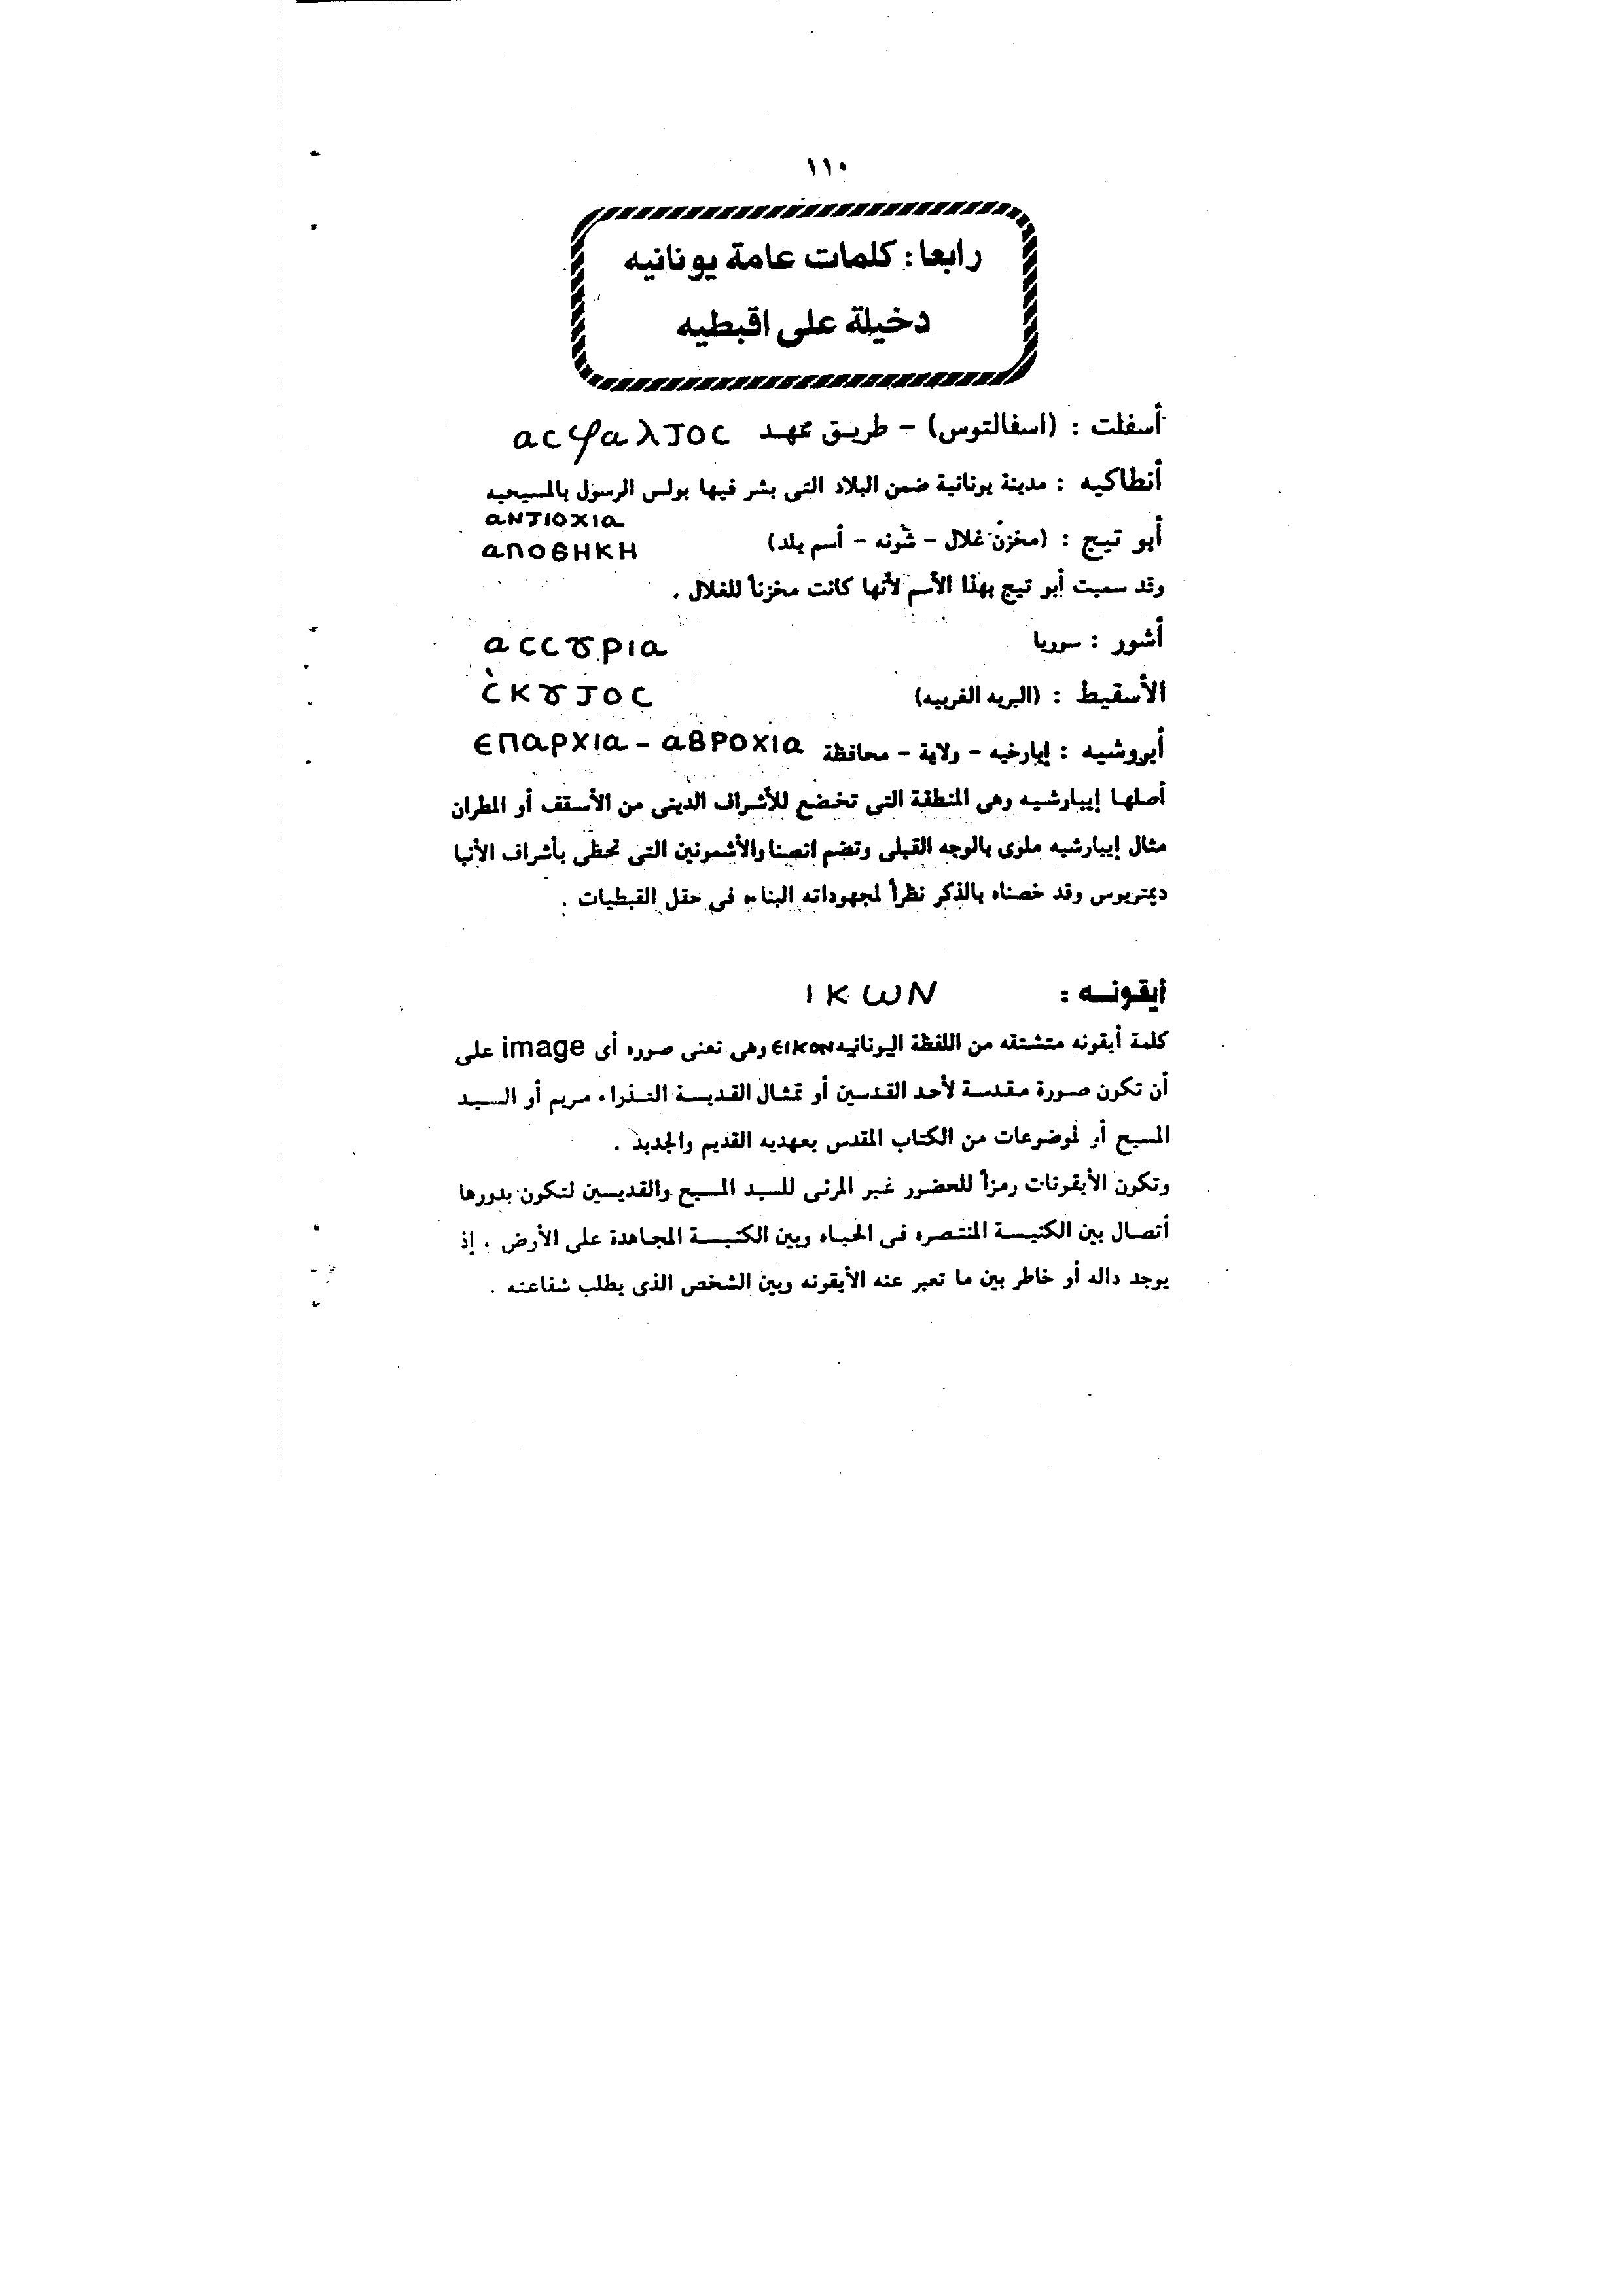 ١١٠
رابعا : كلمات عامة يونانيه
دخيلة على اقبطيه
أسفلت : (اسفالتوس) – طريق مهد ⲁⲥⲫⲁⲗⲧⲟⲥ
أنطاكيه : مدينة يونانية ضمن البلاد التى بشر فيها بولس الرسول بالمسيحيه
ⲁⲛⲧⲓⲟⲭⲓⲁ
أبو تيج : (مخزن غلال – شونه – أسم بلد) ⲁⲡⲟⲑⲏⲕⲏ
وقد سميت أبو تيج بهذا الأسم لأنها كانت مخزناً للغلال .
أشور : سوريا ⲁⲥⲥⲩⲣⲓⲁ
الأسقيط : (البريه الغربيه) ⲥ̀ⲕⲩⲧⲟⲥ
أبروشيه : إبارخيه – ولاية – محافظة ⲉⲡⲁⲣⲭⲓⲁ - ⲁⲃⲣⲟⲭⲓⲁ
أصلها إيبارشيه وهى المنطقة التى تخضع للأشراف الدينى من الأسقف أو المطران
مثال إيبارشيه ملوى بالوجه القبلى وتضم انصنا والأشمونين التى تحظى بأشراف الأنبا
ديمتريوس وقد خصناه بالذكر نظراً لمجهوداته البناء فى حقل القبطيات .
أيقونسه : ⲓⲕⲱⲛ
كلمة أيقونه متشتقه من اللفظة اليونانيه ⲉⲓⲕⲟⲛ وهى تعنى صوره أى image على
أن تكون صورة مقدسة لأحد القدسين أو تمثال القديسة العذراء مريم أو السيد
المسيح أو لموضوعات من الكتاب المقدس بعهديه القديم والجديد .
وتكون الأيقونات رمزاً للحضور غير المرئى للسيد المسيح والقديسين لتكون بدورها
أتصال بين الكنيسة المنتصره فى الحياه وبين الكنيسة المجاهدة على الأرض . إذ
يوجد داله أو خاطر بين ما تعبر عنه الأيقونه وبين الشخص الذى يطلب شفاعته .